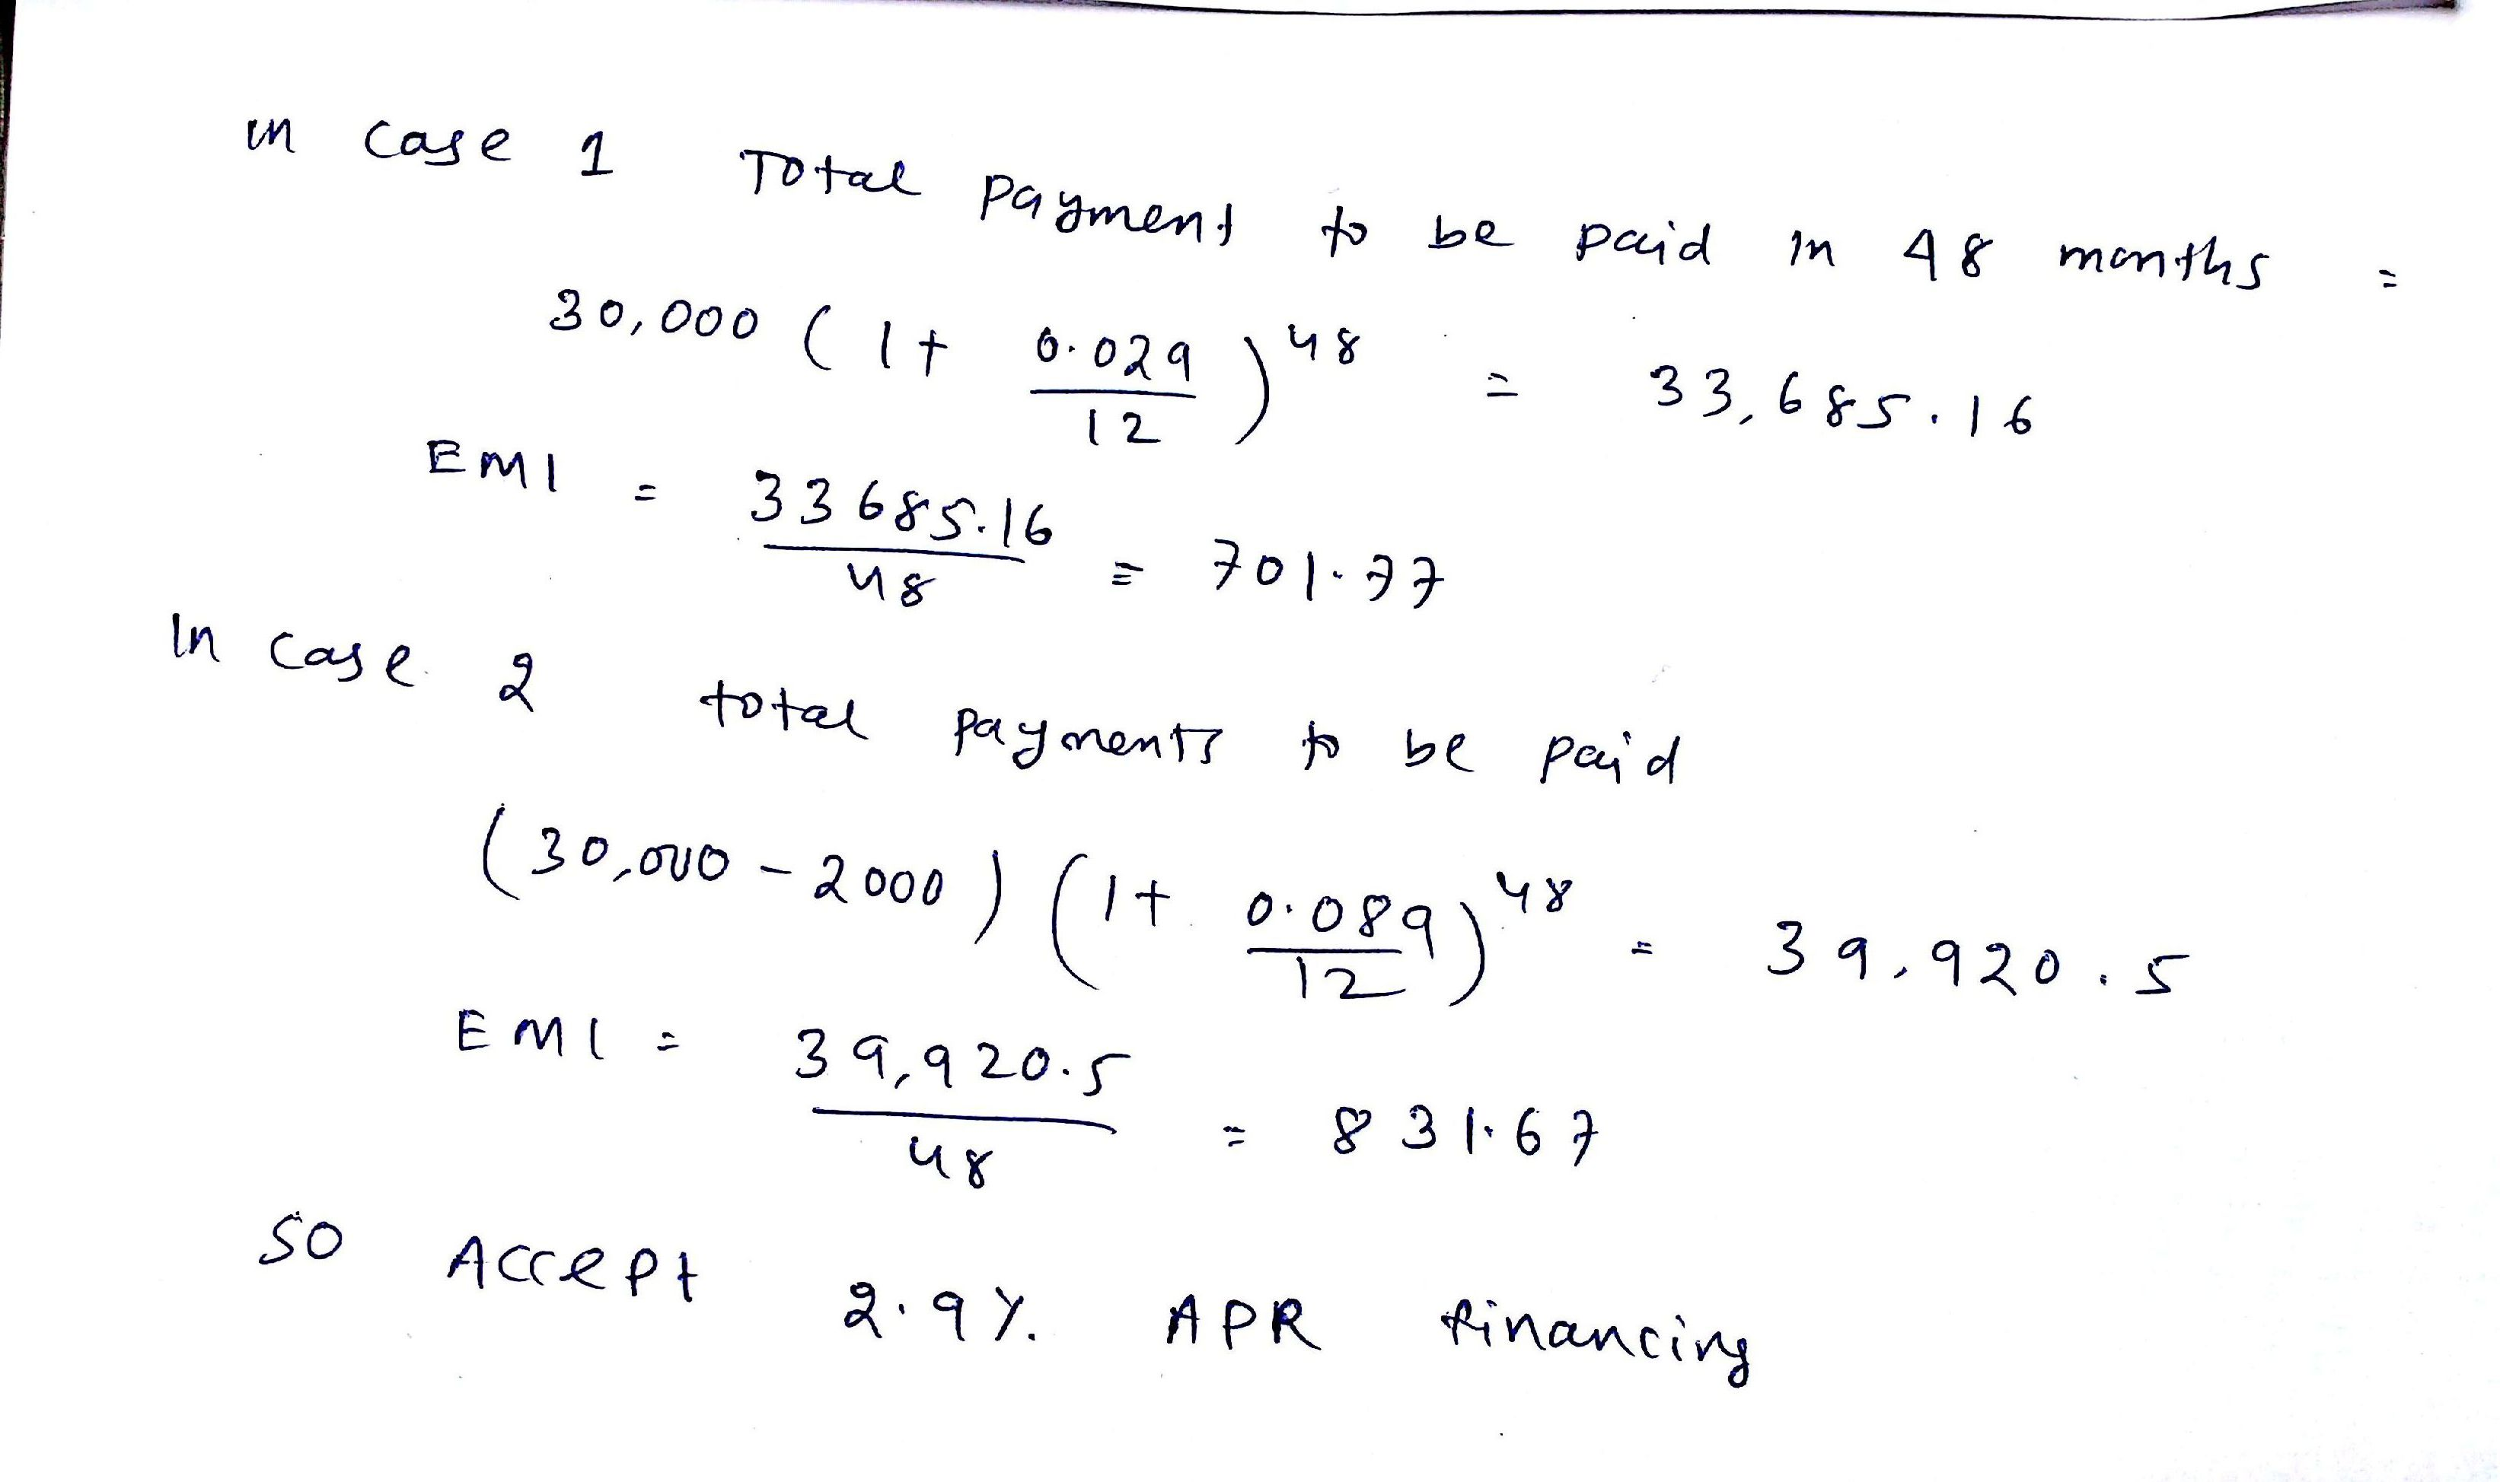 in case 1 Total payment to be paid in 48 months =
30,000 ( 1+ 0.029/12 )^48 = 33,685.16
EMI = 33685.16/48 = 701.77
In case 2 total payments to be paid
(30,000 - 2000) (1+ 0.089/12)^48 = 39,920.5
EMI = 39,920.5/48 = 831.67
SO Accept 2.9% APR financing